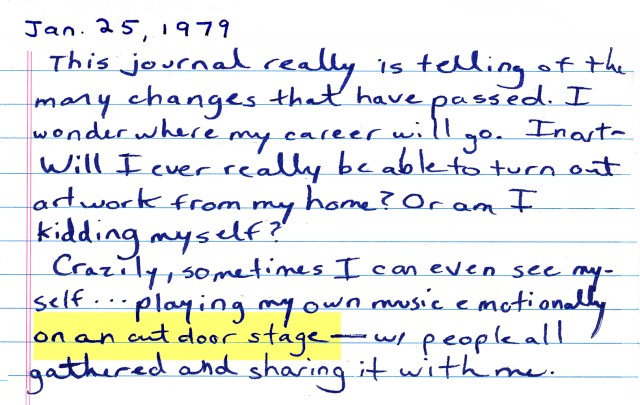 Jan. 25, 1979
This journal really is telling of the
many changes that have passed. I
wonder where my career will go. In art~
Will I ever really be able to turn out
artwork from my home? Or am I
kidding myself?
Crazily, sometimes I can even see my-
self... playing my own music emotionally
on an out door stage — w/ people all
gathered and sharing it with me.